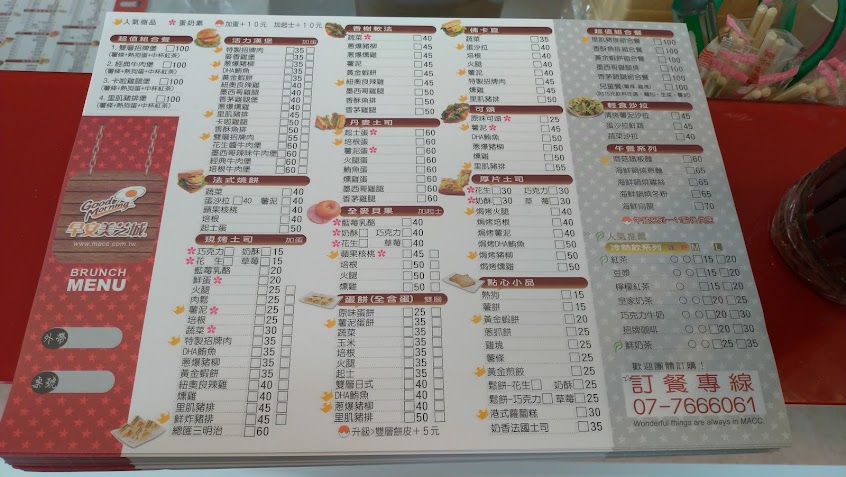 人氣商品 蛋奶素 加蛋+10元 加起士+10元
超值組合餐
1. 雙層招牌堡 100
(薯條+熱狗蛋+中杯紅茶)
2. 經典牛肉堡 100
(薯條+熱狗蛋+中杯紅茶)
3. 卡啦雞腿堡 100
(薯條+熱狗蛋+中杯紅茶)
4. 里肌豬排堡 100
(薯條+熱狗蛋+中杯紅茶)
Good Morning
早安美芝城
www.macc.com.tw
BRUNCH
MENU
外帶
桌號
活力漢堡 加蛋
特製招牌肉 35
麥香雞堡 35
蔥爆豬柳 40
DHA鮪魚 40
黃金蝦餅 40
紐奧良辣雞 40
墨西哥雞腿堡 40
香茅雞腿堡 40
蔥爆燻雞 40
里肌豬排 45
卡啦雞腿 50
香酥魚排 50
雙層招牌肉 55
花生醬牛肉堡 60
墨西哥辣味牛肉堡 60
經典牛肉堡 60
培根牛肉堡 60
法式燒餅
蔬菜 40
蛋沙拉 40 薯泥 40
蘋果核桃 40
培根 40
起士蛋 50
現烤土司 加蛋
巧克力 15 奶酥 15
花生 15 草莓 15
藍莓乳酪 20
鮮蛋 20
火腿 25
肉鬆 25
薯泥 25
培根 25
蔬菜 30
特製招牌肉 35
DHA鮪魚 35
蔥爆豬柳 40
黃金蝦餅 40
紐奧良辣雞 40
燻雞 40
里肌豬排 45
鮮炸豬排 45
總匯三明治 60
香榭軟法
蔬菜 40
蔥爆豬柳 45
蔥爆燻雞 45
薯泥 45
黃金蝦餅 45
紐奧良辣雞 45
墨西哥雞腿 45
香酥魚排 45
香茅雞腿 45
丹麥土司
起士蛋 60
薯泥蛋 60
火腿蛋 60
鮪魚蛋 60
燻雞蛋 60
墨西哥雞腿 60
香茅雞腿 60
全麥貝果 加起士
藍莓乳酪 40
奶酥 巧克力 40
花生 草莓 40
蘋果核桃 45
培根 45
火腿 45
燻雞 45
蛋餅(全含蛋) 雙層
原味蛋餅 25
薯泥蛋餅 25
蔬菜 35
玉米 35
培根 35
火腿 35
起士 35
雙層日式 40
DHA鮪魚 40
蔥爆豬柳 40
里肌豬排 45
升級>雙層餅皮+5元
佛卡夏
蔬菜 40
蛋沙拉 40
培根 40
火腿 40
薯泥 40
特製招牌肉 40
燻雞 45
里肌豬排 50
可頌
原味可頌 25
薯泥 45
DHA鮪魚 50
蔥爆豬柳 50
燻雞 50
里肌豬排 55
厚片土司
花生 30 巧克力 30
奶酥 30 草莓 30
焗烤火腿 50
焗烤培根 50
焗烤薯泥 50
焗烤DHA鮪魚 50
焗烤豬柳 50
焗烤燻雞 50
點心小品
熱狗 15
薯餅 15
黃金蝦餅 20
蔥抓餅 25
雞塊 25
薯條 25
黃金煎餃 25
鬆餅-花生 奶酥 25
鬆餅-巧克力 草莓 25
港式蘿蔔糕 30
奶香法國土司 35
超值組合餐
里肌豬排組合餐 100
香酥魚排組合餐 100
黃金蝦餅組合餐 100
墨西哥雞腿組合餐 100
香茅雞腿組合餐 100
兒童餐(薯條、雞塊) 100
輕食沙拉
清爽薯泥沙拉 45
蛋沙拉鮮蔬 45
蔬菜沙拉 40
午餐系列
蘑菇鐵板麵 60
海鮮鍋燒意麵 65
海鮮鍋燒雞絲 65
海鮮鍋燒冬粉 65
海鮮烏龍 70
人氣推薦
冷熱飲系列 M L
紅茶 15 20
豆漿 15 20
檸檬紅茶 15 20
皇家奶茶 20 25
巧克力牛奶 20 30
招牌咖啡 20 30
鮮奶茶 25 35
歡迎團體訂購!
訂餐專線
07-7666061
Wonderful things are always in MACC.